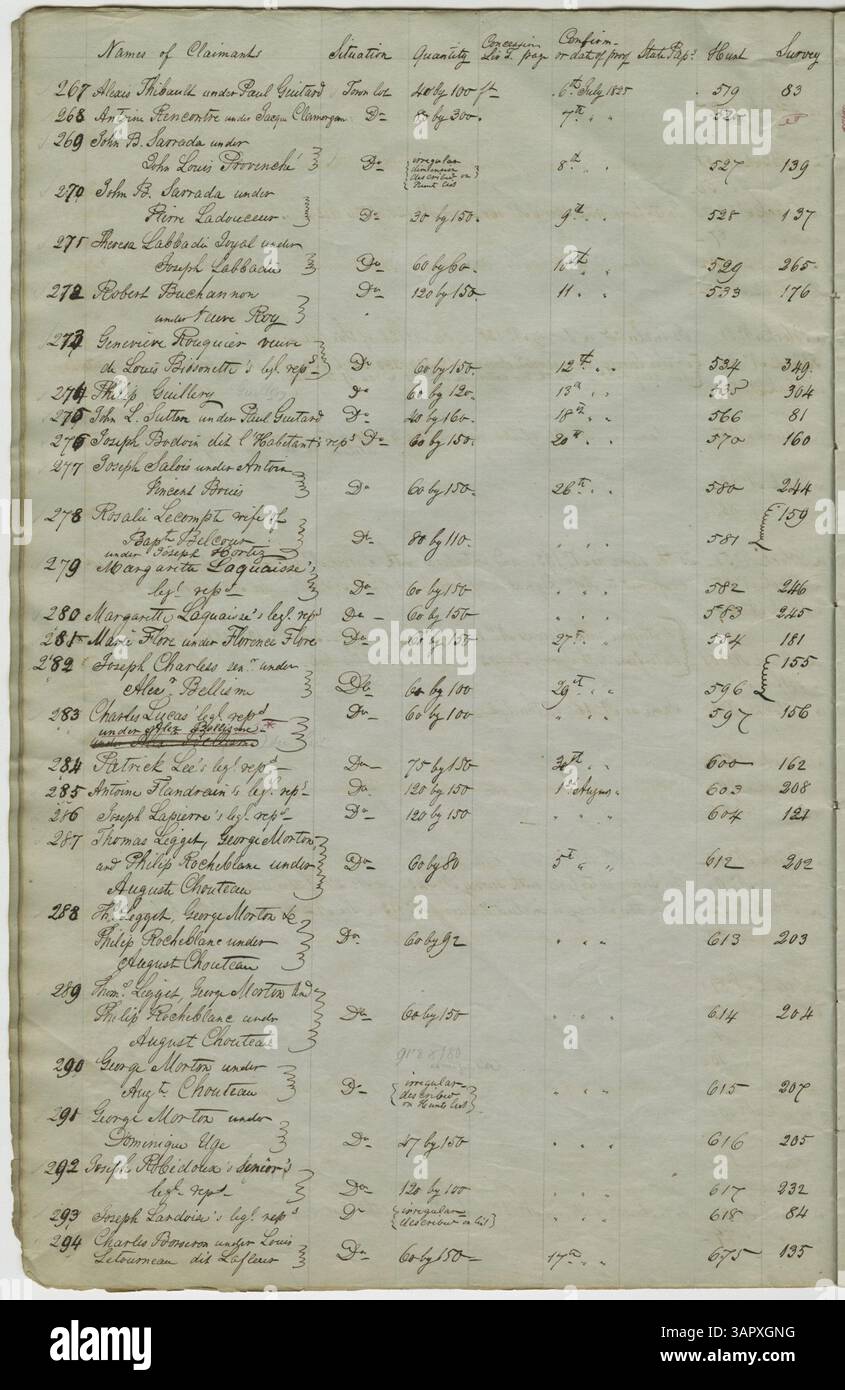 Names of Claimants Situation Quantity Concession Liv T. page Confirm- or dat of prof State Pap.s Hunt Survey
267 Alexis Thibault under Paul Guitard Town lot 40 by 100 ft 6th July 1825 519 83
268 Antoine Rencontre under Jacqu Clamorgan Do 80 by 300 7th " " 520
269 John B. Sarrada under
John Louis Provenché Do irregular dimension described on Hunt list 8th " " 527 139
270 John B. Sarrada under
Pierre Ladouceur Do 30 by 150 9th " " 528 137
271 Theresa Labbadie Joyal under
Joseph Labbadie Do 60 by 60 10th " " 529 265
272 Robert Buchannon Do 120 by 150 11 " " 533 176
under Veuve Roy
273 Genevieve Rouquier veuve
de Louis Bissonette's legl. reps Do 60 by 150 12th " " 534 349
274 Philip Guillory do 60 by 120 13th " " 535 304
275 John L. Sutton under Paul Guitard Do 40 by 160 18th " " 566 81
276 Joseph Bodoin dit l'Habitant's reps Do 60 by 150 20th " " 570 160
277 Joseph Salois under Antoin
Vincent Bouis Do 60 by 150 26th " " 580 244
278 Rosalie Lecompt wife of 159
Bapt Belcour Do 80 by 110 " " " 581
under Joseph Hortiz
279 Margarette Laquaisse's
legl. reps Do 60 by 150 " " " 582 246
280 Margarette Laquaisse's legl. reps Do 60 by 150 " " " 583 245
281 Marie Flore under Florence Flore Do 60 by 150 27th " " 584 181
282 Joseph Charless senr under 155
Alexr Bellisim Do 60 by 100 29th " " 596
283 Charles Lucas' legl. reps Do 60 by 100 " " " 597 156
under Alex Bellissime *
284 Patrick Lee's legl. reps Do 75 by 150 30th " " 600 162
285 Antoine Flandrain's legl. reps Do 120 by 150 1st Augus " 603 208
286 Joseph Lapierre's legl. reps Do 120 by 150 " " " 604 121
287 Thomas Legget, George Morton
and Philip Rocheblanc under Do 60 by 80 5th " " 612 202
August Chouteau
288 Th. Legget, George Morton &
Philip Rocheblanc under Do 60 by 92 " " " 613 203
August Chouteau
289 Thoms Legget, George Morton and
Philip Rocheblanc under Do 60 by 150 614 204
August Chouteau
290 George Morton under
Augt. Chouteau Do irregular described on Hunts list " " " 615 207
291 George Morton under
Dominique Uge Do 47 by 150 " " " 616 205
292 Joseph Robidoux's senior's
legl. reps Do 120 by 100 " " " 617 232
293 Joseph Landoise's legl. reps Do irregular describd on list " " " 618 84
294 Charles Bosseron under Louis
Letourneau dit Lafleur Do 60 by 150 17th " " 675 135
alamy
Image ID: 3APXGNG
www.alamy.com